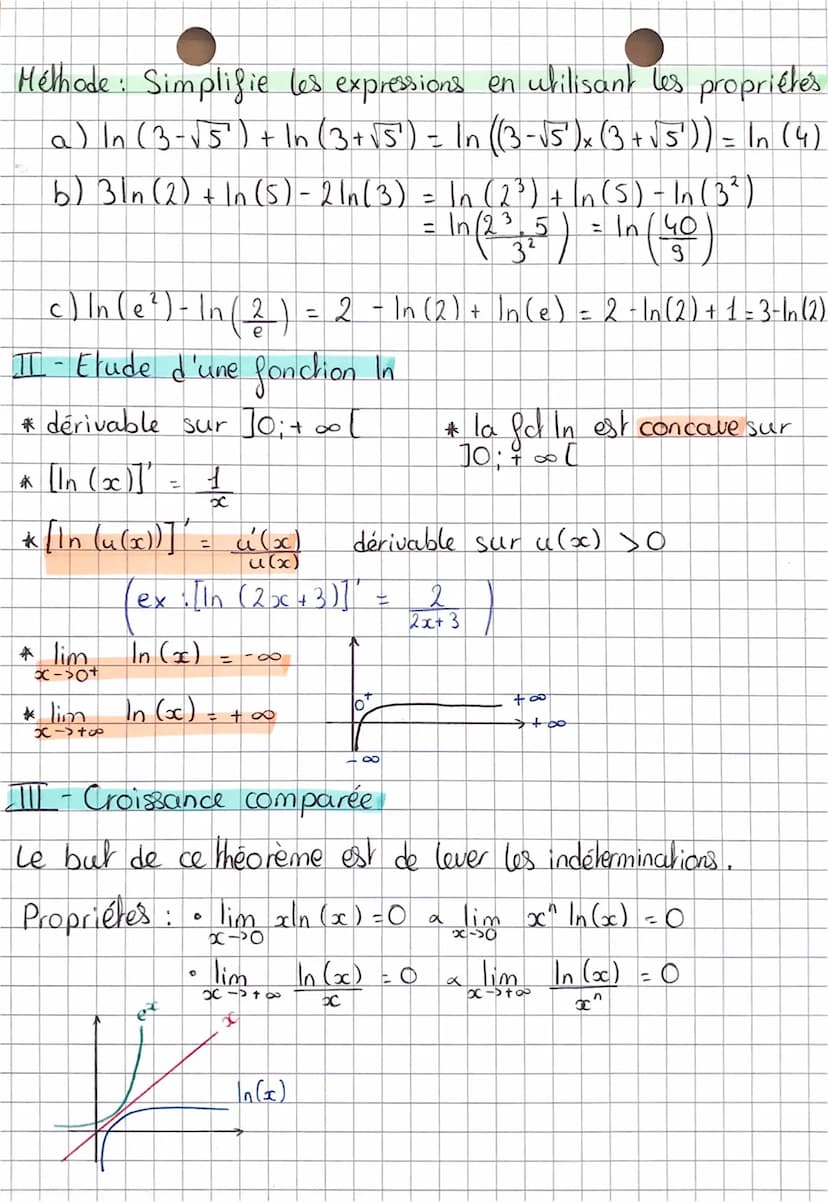 Méthode : Simplifie les expressions en utilisant les propriétés
a) ln (3-√5) + ln (3+√5) = ln ((3-√5)×(3+√5)) = ln (4)
b) 3ln(2) + ln(5) - 2ln(3) = ln (2³) + ln(5) - ln(3²)
= ln(2³.5/3²) = ln(40/9)
c) ln(e²) - ln(2/e) = 2 - ln(2) + ln(e) = 2 - ln(2) + 1 = 3-ln(2)
II - Etude d'une fonction ln
* dérivable sur ]0;+∞[ * la fct ln est concave sur
]0;+∞[
* [ln(x)]' = 1/x
* [ln(u(x))]' = u'(x)/u(x) dérivable sur u(x) >0
(ex : [ln (2x+3)]' = 2/2x+3)
* lim x->0+ ln(x) = -∞
0+ +∞
* lim x->+∞ ln(x) = +∞
+∞
-∞
III - Croissance comparée
Le but de ce théorème est de lever les indéterminations.
Propriétés : • lim x->0 xln(x) =0 a lim x->0 xⁿ ln(x) = 0
• lim x->+∞ ln(x)/x = 0 a lim x->+∞ ln(x)/xⁿ = 0
eˣ x
ln(x)